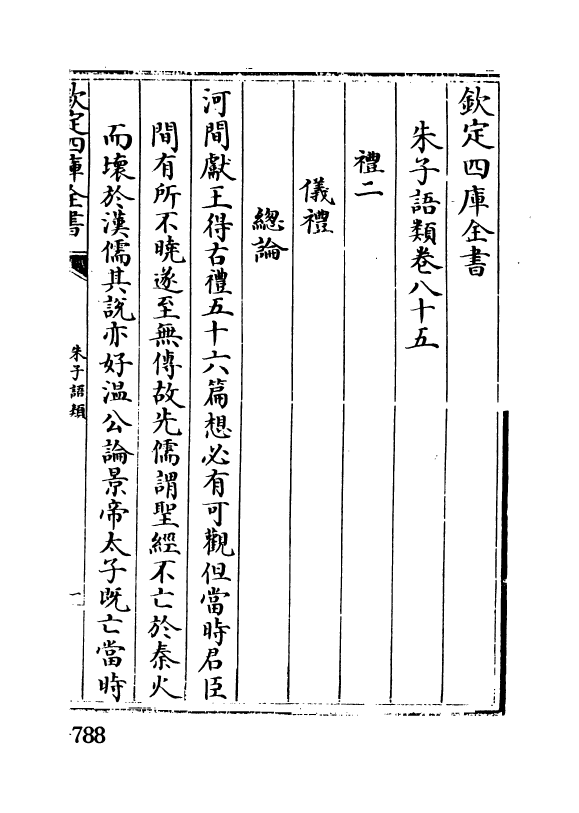 欽定四庫全書
朱子語類卷八十五
禮二
儀禮
總論
河間獻王得古禮五十六篇想必有可觀但當時君臣
間有所不曉遂至無傳故先儒謂聖經不亡於秦火
而壞於漢儒其說亦好溫公論景帝太子既亡當時
欽定四庫全書
朱子語類
一
788